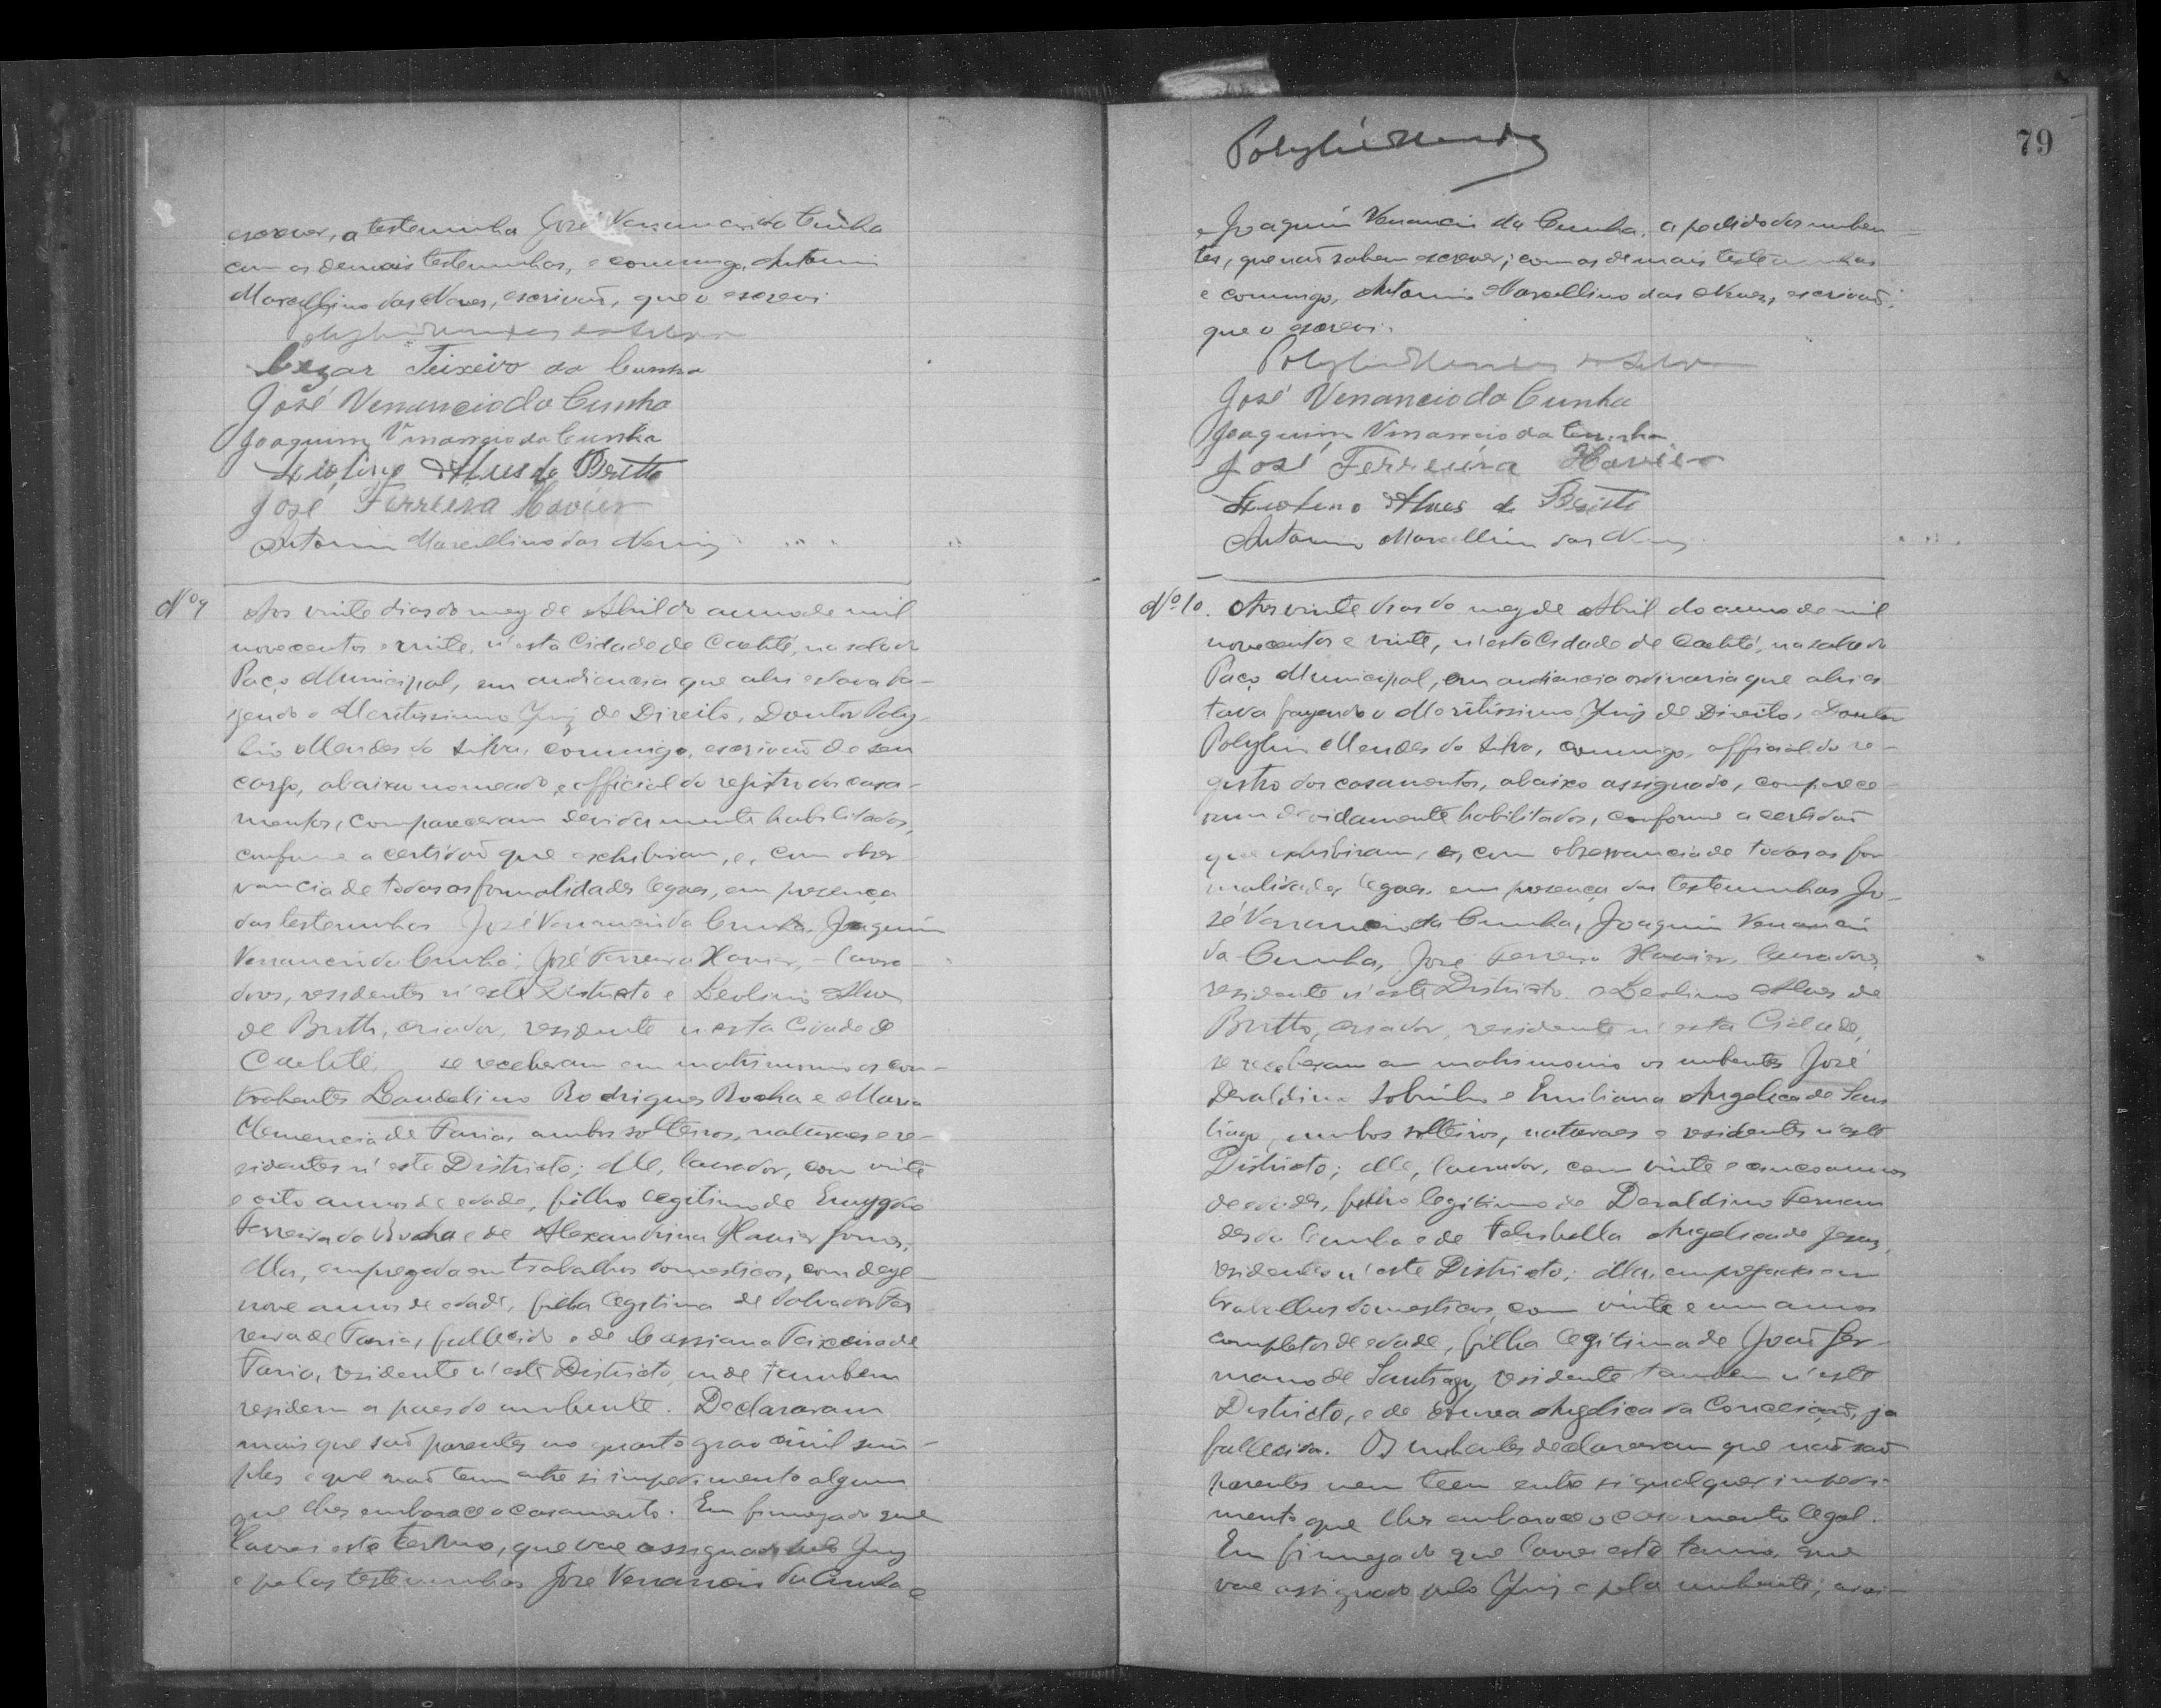 escrever, a testemunha José Venancio da Cunha
com as demais testemunhas, e commigo, Antonio
Marcellino das Neves, escrivaõ, que o escrevi.
Polybio Mendes da Silva
Cezar Teixeira da Cunha
José Venancio da Cunha
Joaquim Venancio da Cunha
Leolino Alves de Britto
José Ferreira Xavier
Antonio Marcellino das Neves
Nº 9 Aos vinte dias do mez de Abril do anno de mil
novecentos e vinte, n'esta Cidade de Caeteté, na sala do
Paço Municipal, em audiencia que ahi estava fa-
zendo o Meritissimo Juiz de Direito, Doutor Poly-
bio Mendes da Silva, commigo, escrivaõ de seu
cargo, abaixo nomeado, e official do registro dos casa-
mentos, compareceram devidamente habilitados,
conforme a certidaõ que exhibiram, e, com obser-
vancia de todas as formalidades legaes, em presença
das testemunhas José Venancio da Cunha, Joaquim
Venancio da Cunha, José Ferreira Xavier, lavra-
dores, residentes n'este Districto e Leolino Alves
de Britto, criador, residente n'esta Cidade de
Caeteté, se receberam em matrimonio os con-
trahentes Laudelino Rodrigues Rocha e Maria
Clemencia de Faria, ambos solteiros, naturaes e re-
sidentes n'este Districto; elle, lavrador, com vinte
e oito annos de edade, filho legitimo de Emygdio
Ferreira da Rocha e de Alexandrina Xavier
ella, empregada em trabalhos domesticos, com deze-
nove annos de edade, filha legitima de Salvador Fer-
reira de Faria, fallecido e de Cassiana Teixeira de
Faria, residente n'este Districto, onde tambem
residem os paes do nubente. Declararam
mais que saõ parentes no quarto grao civil sim-
ples e que naõ tem entre si impedimento algum
que lhes embarace o casamento. Em firmeza do que
lavrei este termo, que vae assignado pelo Juiz
e pelas testemunhas José Venancio da Cunha e
Polybio Mendes
79
e Joaquim Venancio da Cunha, a pedido dos nuben-
tes, que naõ sabem escrever; com as demais testemunhas
e commigo, Antonio Marcellino das Neves, escrivaõ,
que o escrevi.
Polybio Mendes da Silva
José Venancio da Cunha
Joaquim Venancio da Cunha
José Ferreira Xavier
Leolino Alves de Britto
Antonio Marcellino das Neves
Nº 10. Aos vinte dias do mez de Abril do anno de mil
novecentos e vinte, n'esta Cidade de Caeteté, na sala do
Paço Municipal, em audiencia ordinaria que ahi es-
tava fazendo o Meritissimo Juiz de Direito, Doutor
Polybio Mendes da Silva, commigo, official do re-
gistro dos casamentos, abaixo assignado, comparece-
ram devidamente habilitados, conforme a certidaõ
que exhibiram, e, com observancia de todas as for-
malidades legaes, em presença das testemunhas Jo-
sé Venancio da Cunha, Joaquim Venancio
da Cunha, José Ferreira Xavier, lavradores,
residente n'este Districto e Leolino Alves de
Britto, criador, residente n'esta Cidade,
se receberam em matrimonio os nubentes José
Deraldino Sobrinho e Emiliana Angelica de San-
tiago, ambos solteiros, naturaes e residentes n'este
Districto; elle, lavrador, com vinte e cinco annos
de edade, filho legitimo de Deraldino Fernan-
des da Cunha e de Felisbella Angelica de Jesus,
residentes n'este Districto; ella, empregada em
trabalhos domesticos, com vinte e um annos
completos de edade, filha legitima de Joaõ Ger-
mano de Santiago, residente tambem n'este
Districto, e de Angelica da Conceiçaõ, já
fallecida. Os nubentes declararam que naõ saõ
parentes nem teem entre si qualquer impedi-
mento que lhes embarace o casamento legal.
Em firmeza do que lavrei este termo, que
vae assignado pelo Juiz e pela nubente,